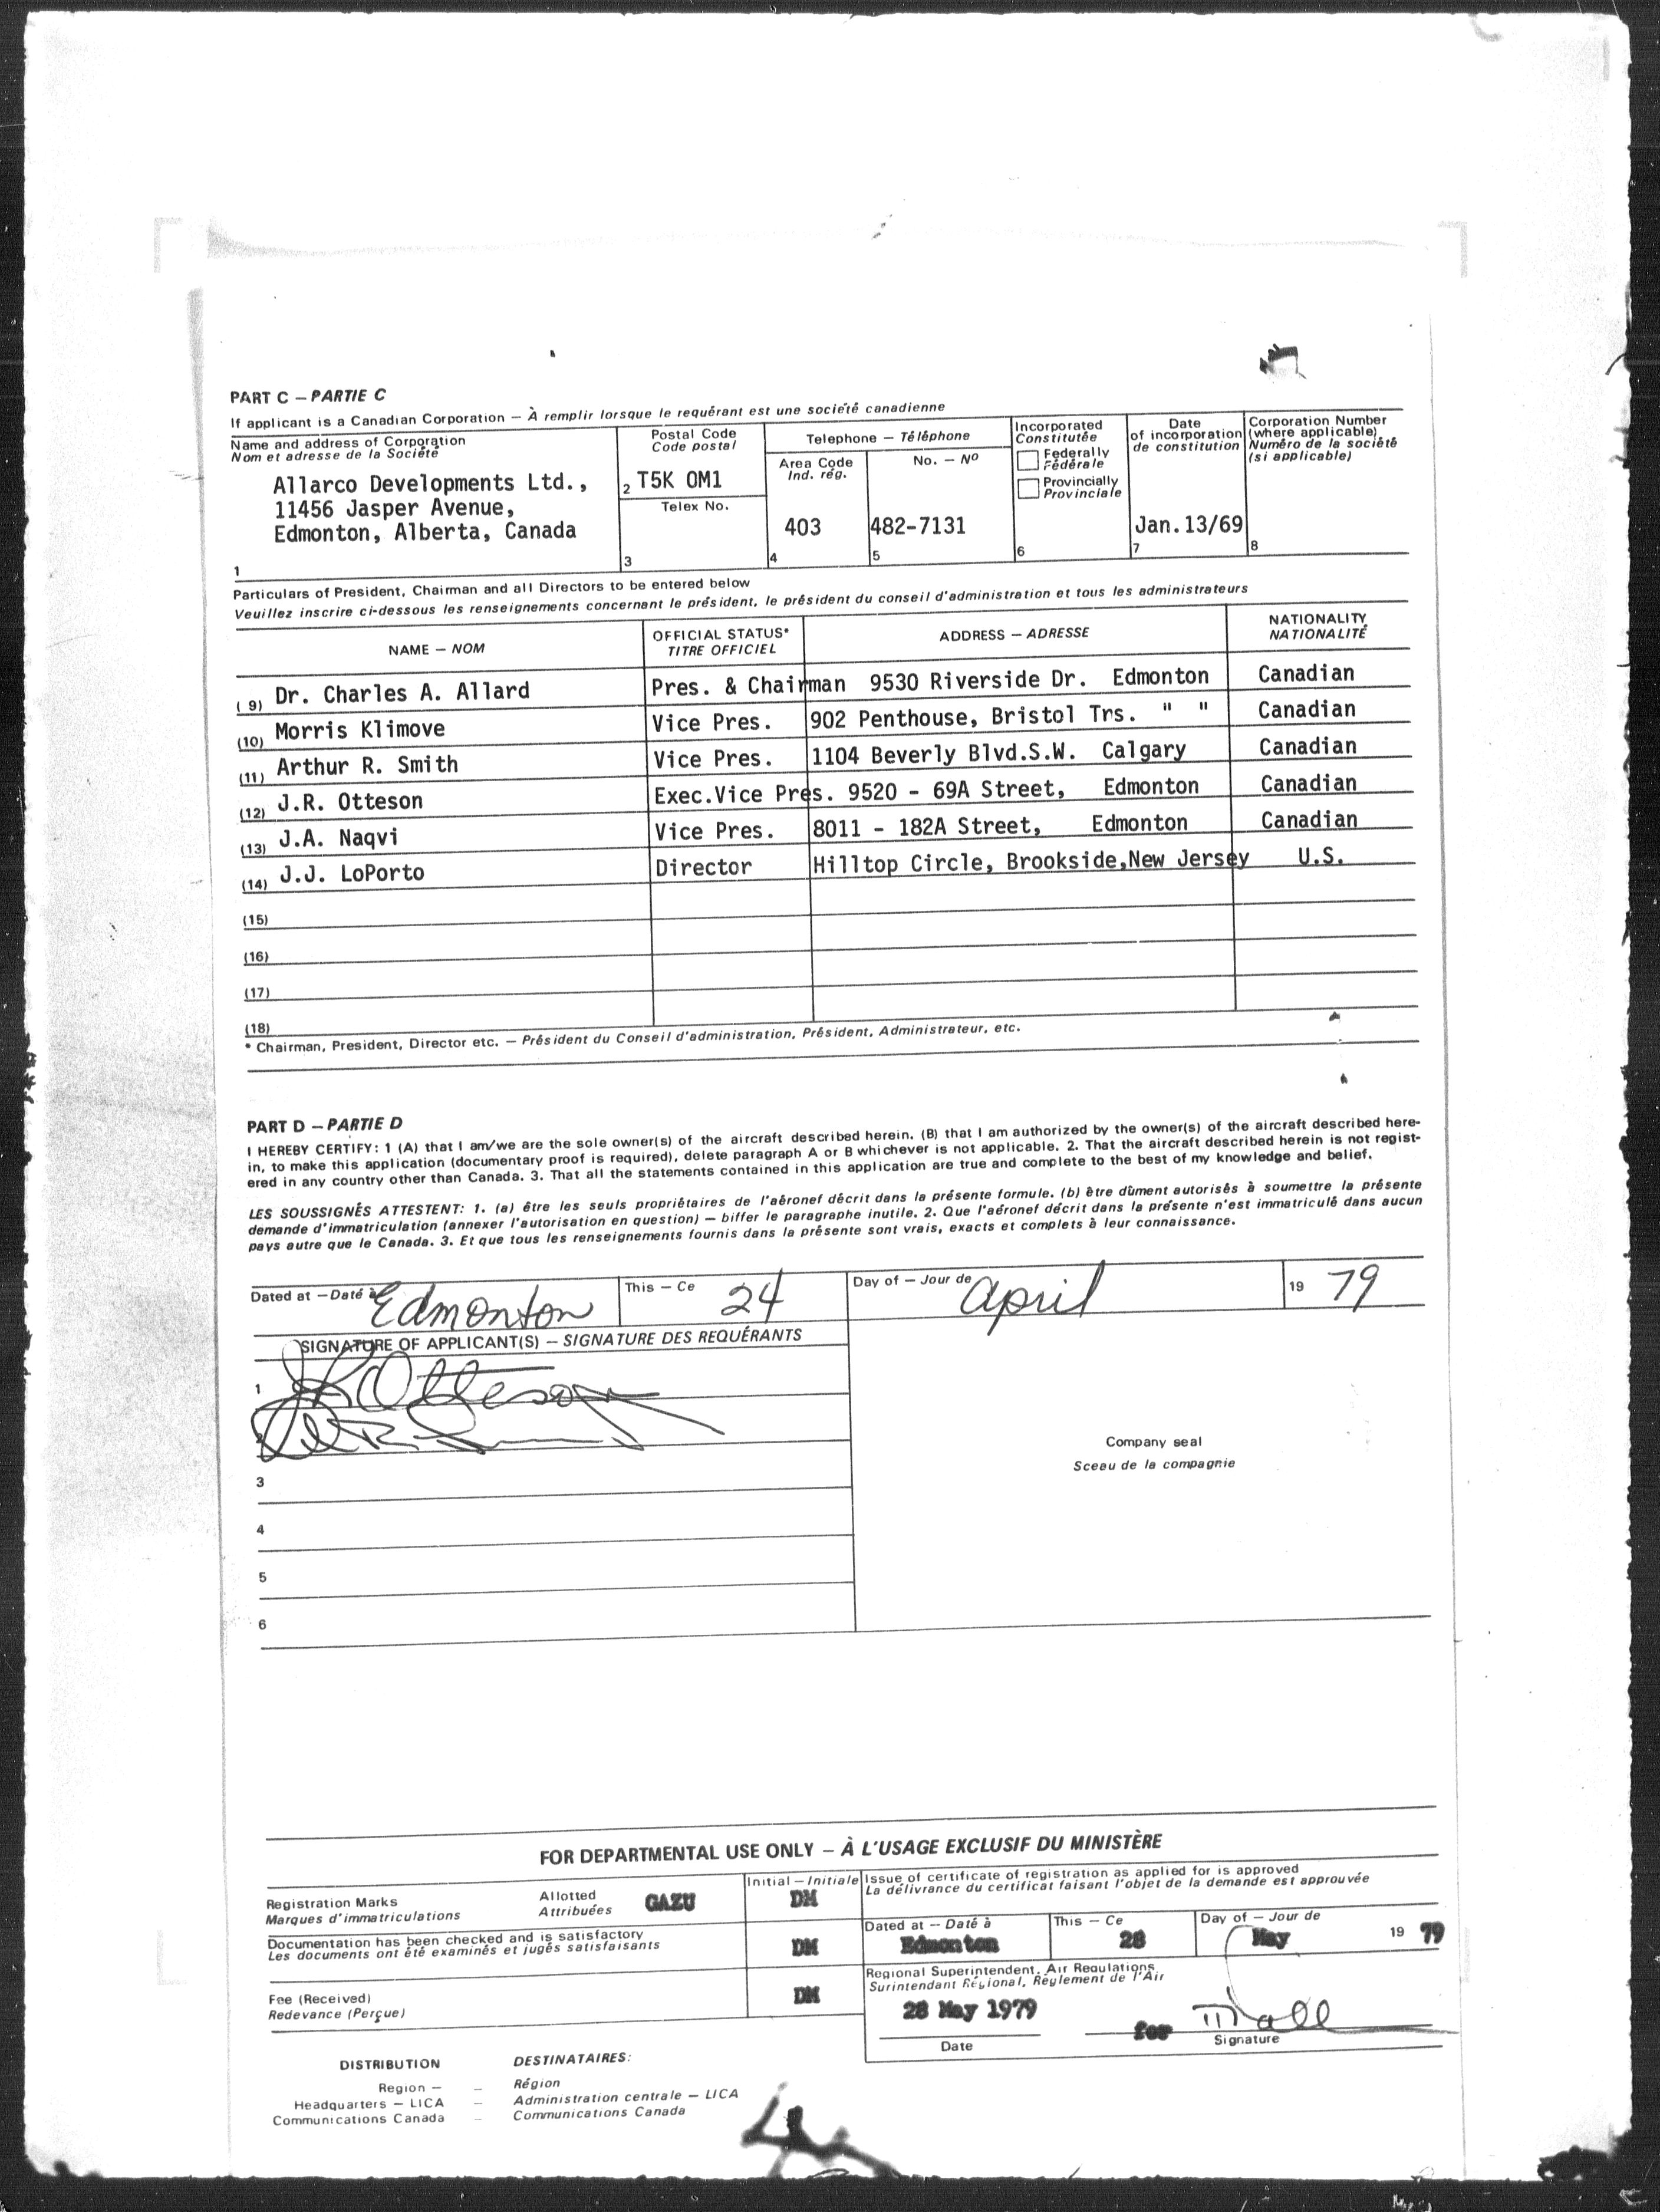 PART C – PARTIE C
If applicant is a Canadian Corporation – À remplir lorsque le requérant est une société canadienne
Name and address of Corporation
Nom et adresse de la Société
Allarco Developments Ltd.,
11456 Jasper Avenue,
Edmonton, Alberta, Canada
1
Postal Code
Code postal
2 T5K 0M1
Telex No.
3
Telephone – Téléphone
Area Code
Ind. rég.
403
4
No. – Nº
482-7131
5
Incorporated
Constitutée
Federally
Fédérale
Provincially
Provinciale
6
Date
of incorporation
de constitution
Jan.13/69
7
Corporation Number
(where applicable)
Numéro de la société
(si applicable)
8
Particulars of President, Chairman and all Directors to be entered below
Veuillez inscrire ci-dessous les renseignements concernant le président, le président du conseil d'administration et tous les administrateurs
NAME – NOM
OFFICIAL STATUS*
TITRE OFFICIEL
ADDRESS – ADRESSE
NATIONALITY
NATIONALITÉ
(9) Dr. Charles A. Allard Pres. & Chairman 9530 Riverside Dr. Edmonton Canadian
(10) Morris Klimove Vice Pres. 902 Penthouse, Bristol Trs. " " Canadian
(11) Arthur R. Smith Vice Pres. 1104 Beverly Blvd.S.W. Calgary Canadian
(12) J.R. Otteson Exec.Vice Pres. 9520 - 69A Street, Edmonton Canadian
(13) J.A. Naqvi Vice Pres. 8011 - 182A Street, Edmonton Canadian
(14) J.J. LoPorto Director Hilltop Circle, Brookside,New Jersey U.S.
(15)
(16)
(17)
(18)
* Chairman, President, Director etc. – Président du Conseil d'administration, Président, Administrateur, etc.
PART D – PARTIE D
I HEREBY CERTIFY: 1 (A) that I am/we are the sole owner(s) of the aircraft described herein. (B) that I am authorized by the owner(s) of the aircraft described here-
in, to make this application (documentary proof is required), delete paragraph A or B whichever is not applicable. 2. That the aircraft described herein is not regist-
ered in any country other than Canada. 3. That all the statements contained in this application are true and complete to the best of my knowledge and belief.
LES SOUSSIGNÉS ATTESTENT: 1. (a) être les seuls propriétaires de l'aéronef décrit dans la présente formule. (b) être dûment autorisés à soumettre la présente
demande d'immatriculation (annexer l'autorisation en question) – biffer le paragraphe inutile. 2. Que l'aéronef décrit dans la présente n'est immatriculé dans aucun
pays autre que le Canada. 3. Et que tous les renseignements fournis dans la présente sont vrais, exacts et complets à leur connaissance.
Dated at – Daté à Edmonton This – Ce 24 Day of – Jour de April 19 79
SIGNATURE OF APPLICANT(S) – SIGNATURE DES REQUÉRANTS
1 JR Otteson
3
4
5
6
Company seal
Sceau de la compagnie
FOR DEPARTMENTAL USE ONLY – À L'USAGE EXCLUSIF DU MINISTÈRE
Registration Marks
Marques d'immatriculations
Allotted
Attribuées
GAZU
Initial – Initiale
DM
Documentation has been checked and is satisfactory
Les documents ont été examinés et jugés satisfaisants
DM
Fee (Received)
Redevance (Perçue)
DM
Issue of certificate of registration as applied for is approved
La délivrance du certificat faisant l'objet de la demande est approuvée
Dated at – Daté à
Edmonton
This – Ce
28
Day of – Jour de
May
19 79
Regional Superintendent, Air Regulations
Surintendant Régional, Règlement de l'Air
28 May 1979
Date
for
Signature
DISTRIBUTION
Region –
Headquarters – LICA
Communications Canada
DESTINATAIRES:
– Région
– Administration centrale – LICA
– Communications Canada